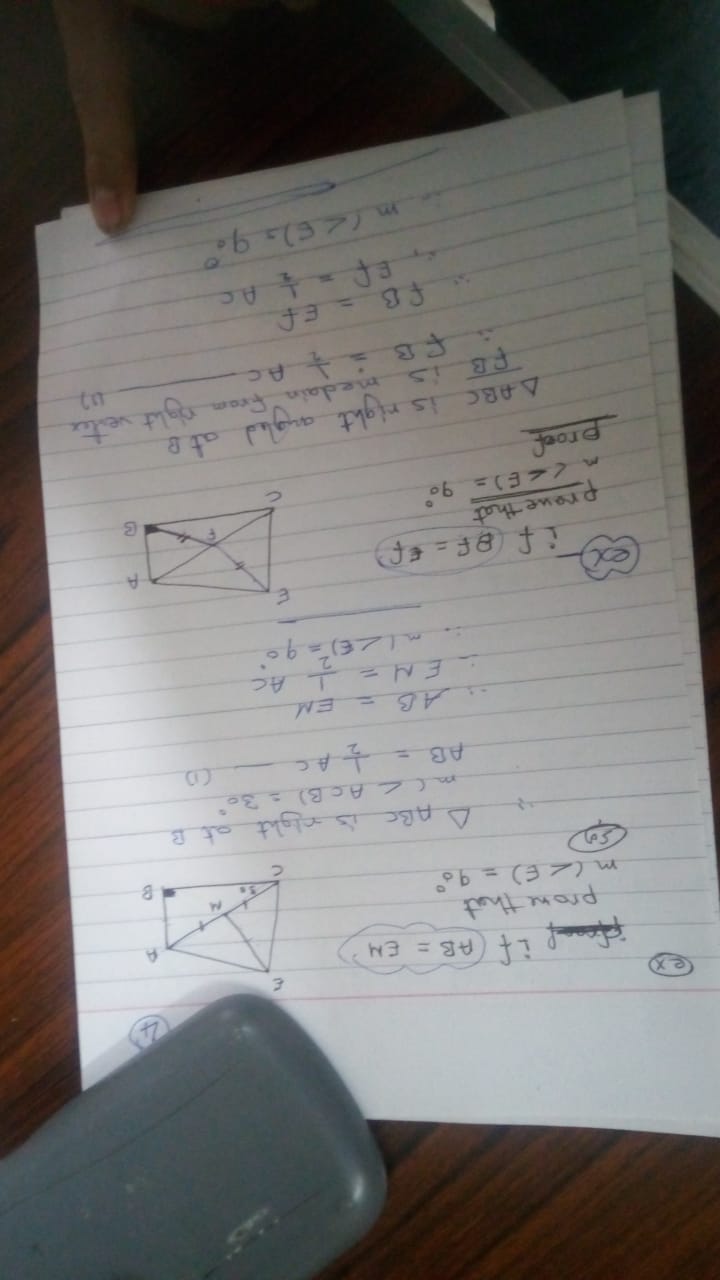 4
ex
if AB = EM
prove that
m(<E) = 90°
A
E
M
B
30
C
∵ Δ ABC is right at B
m(< ACB) = 30°
AB = 1/2 AC — (1)
∵ AB = EM
∴ EM = 1/2 AC
∴ m(<E) = 90°
ex
if BF = EF
prove that
m(<E) = 90°
E
A
F
B
C
proof
Δ ABC is right angled at B
FB is medain from right vertex
∴ FB = 1/2 AC — (1)
∵ FB = EF
∴ EF = 1/2 AC
∴ m(<E) = 90°